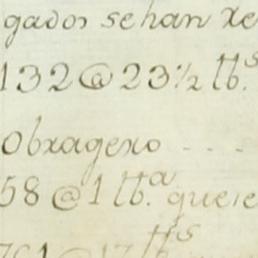 gados se han re
132@23½ lb.s
Obragero ....
58@1 lb.a que le
761@17 lb.s